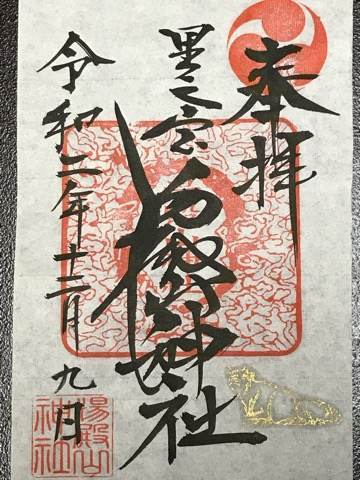 奉拝
里之宮
湯殿山神社
令和二年十二月九日
湯殿山
神社